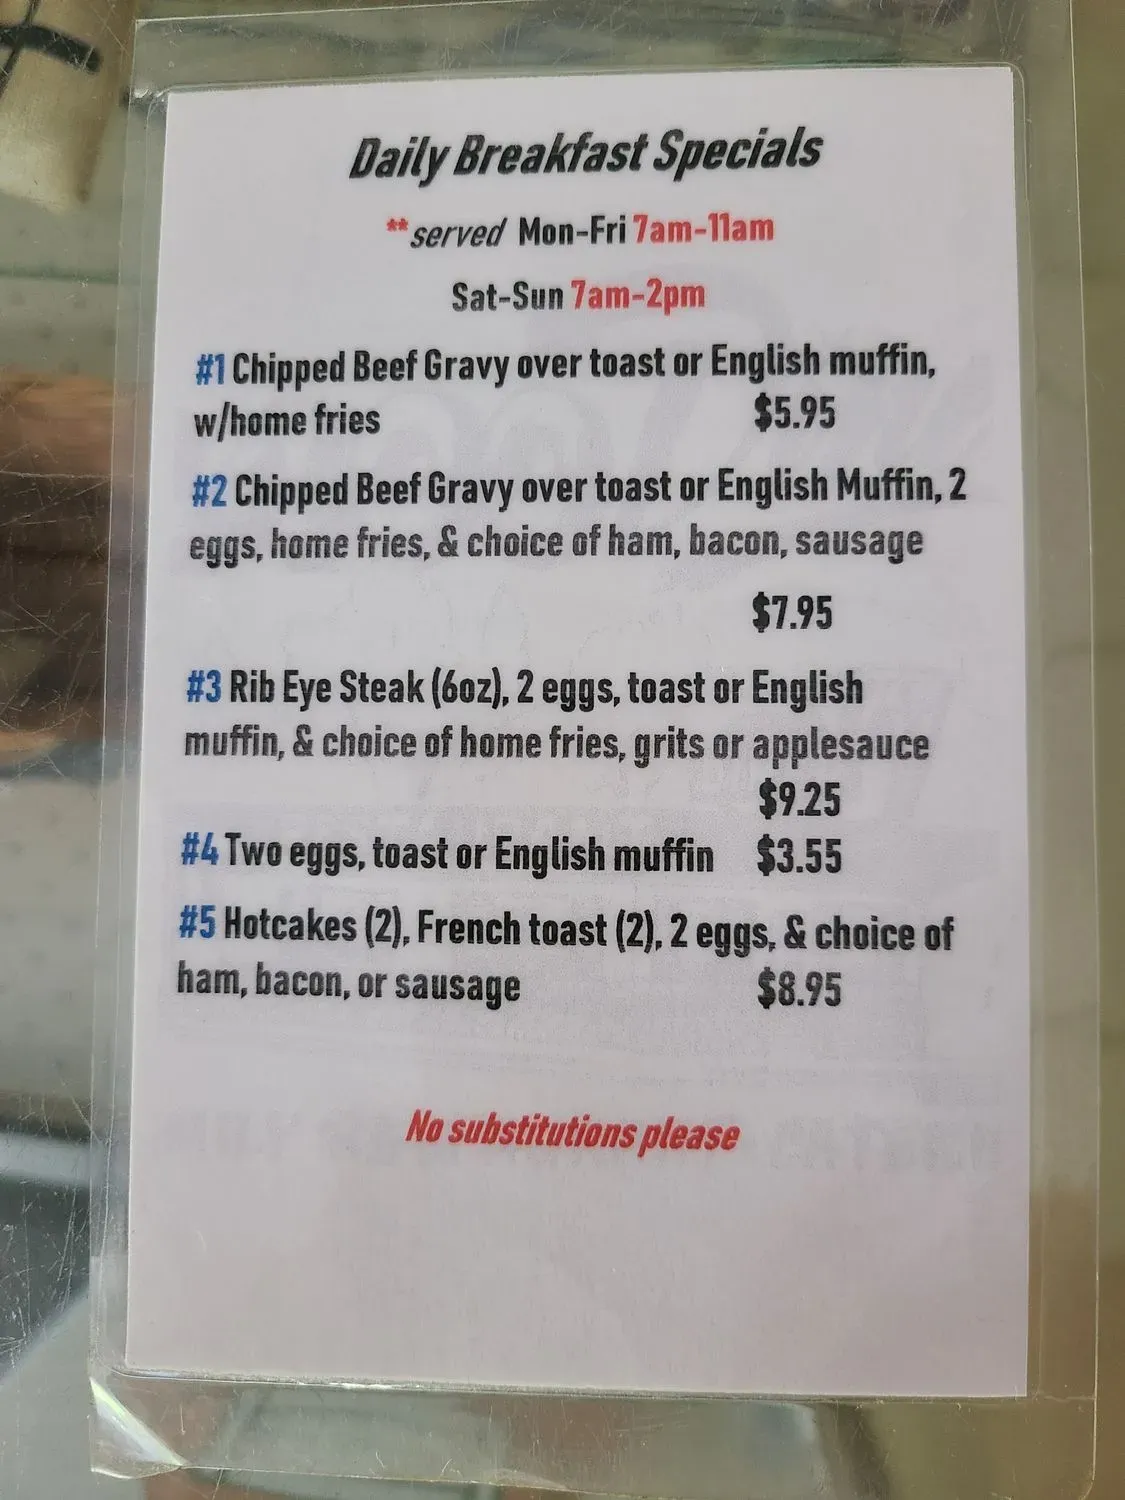 Daily Breakfast Specials
**served Mon-Fri 7am-11am
Sat-Sun 7am-2pm
#1 Chipped Beef Gravy over toast or English muffin,
w/home fries $5.95
#2 Chipped Beef Gravy over toast or English Muffin, 2
eggs, home fries, & choice of ham, bacon, sausage
$7.95
#3 Rib Eye Steak (6oz), 2 eggs, toast or English
muffin, & choice of home fries, grits or applesauce
$9.25
#4 Two eggs, toast or English muffin $3.55
#5 Hotcakes (2), French toast (2), 2 eggs, & choice of
ham, bacon, or sausage $8.95
No substitutions please